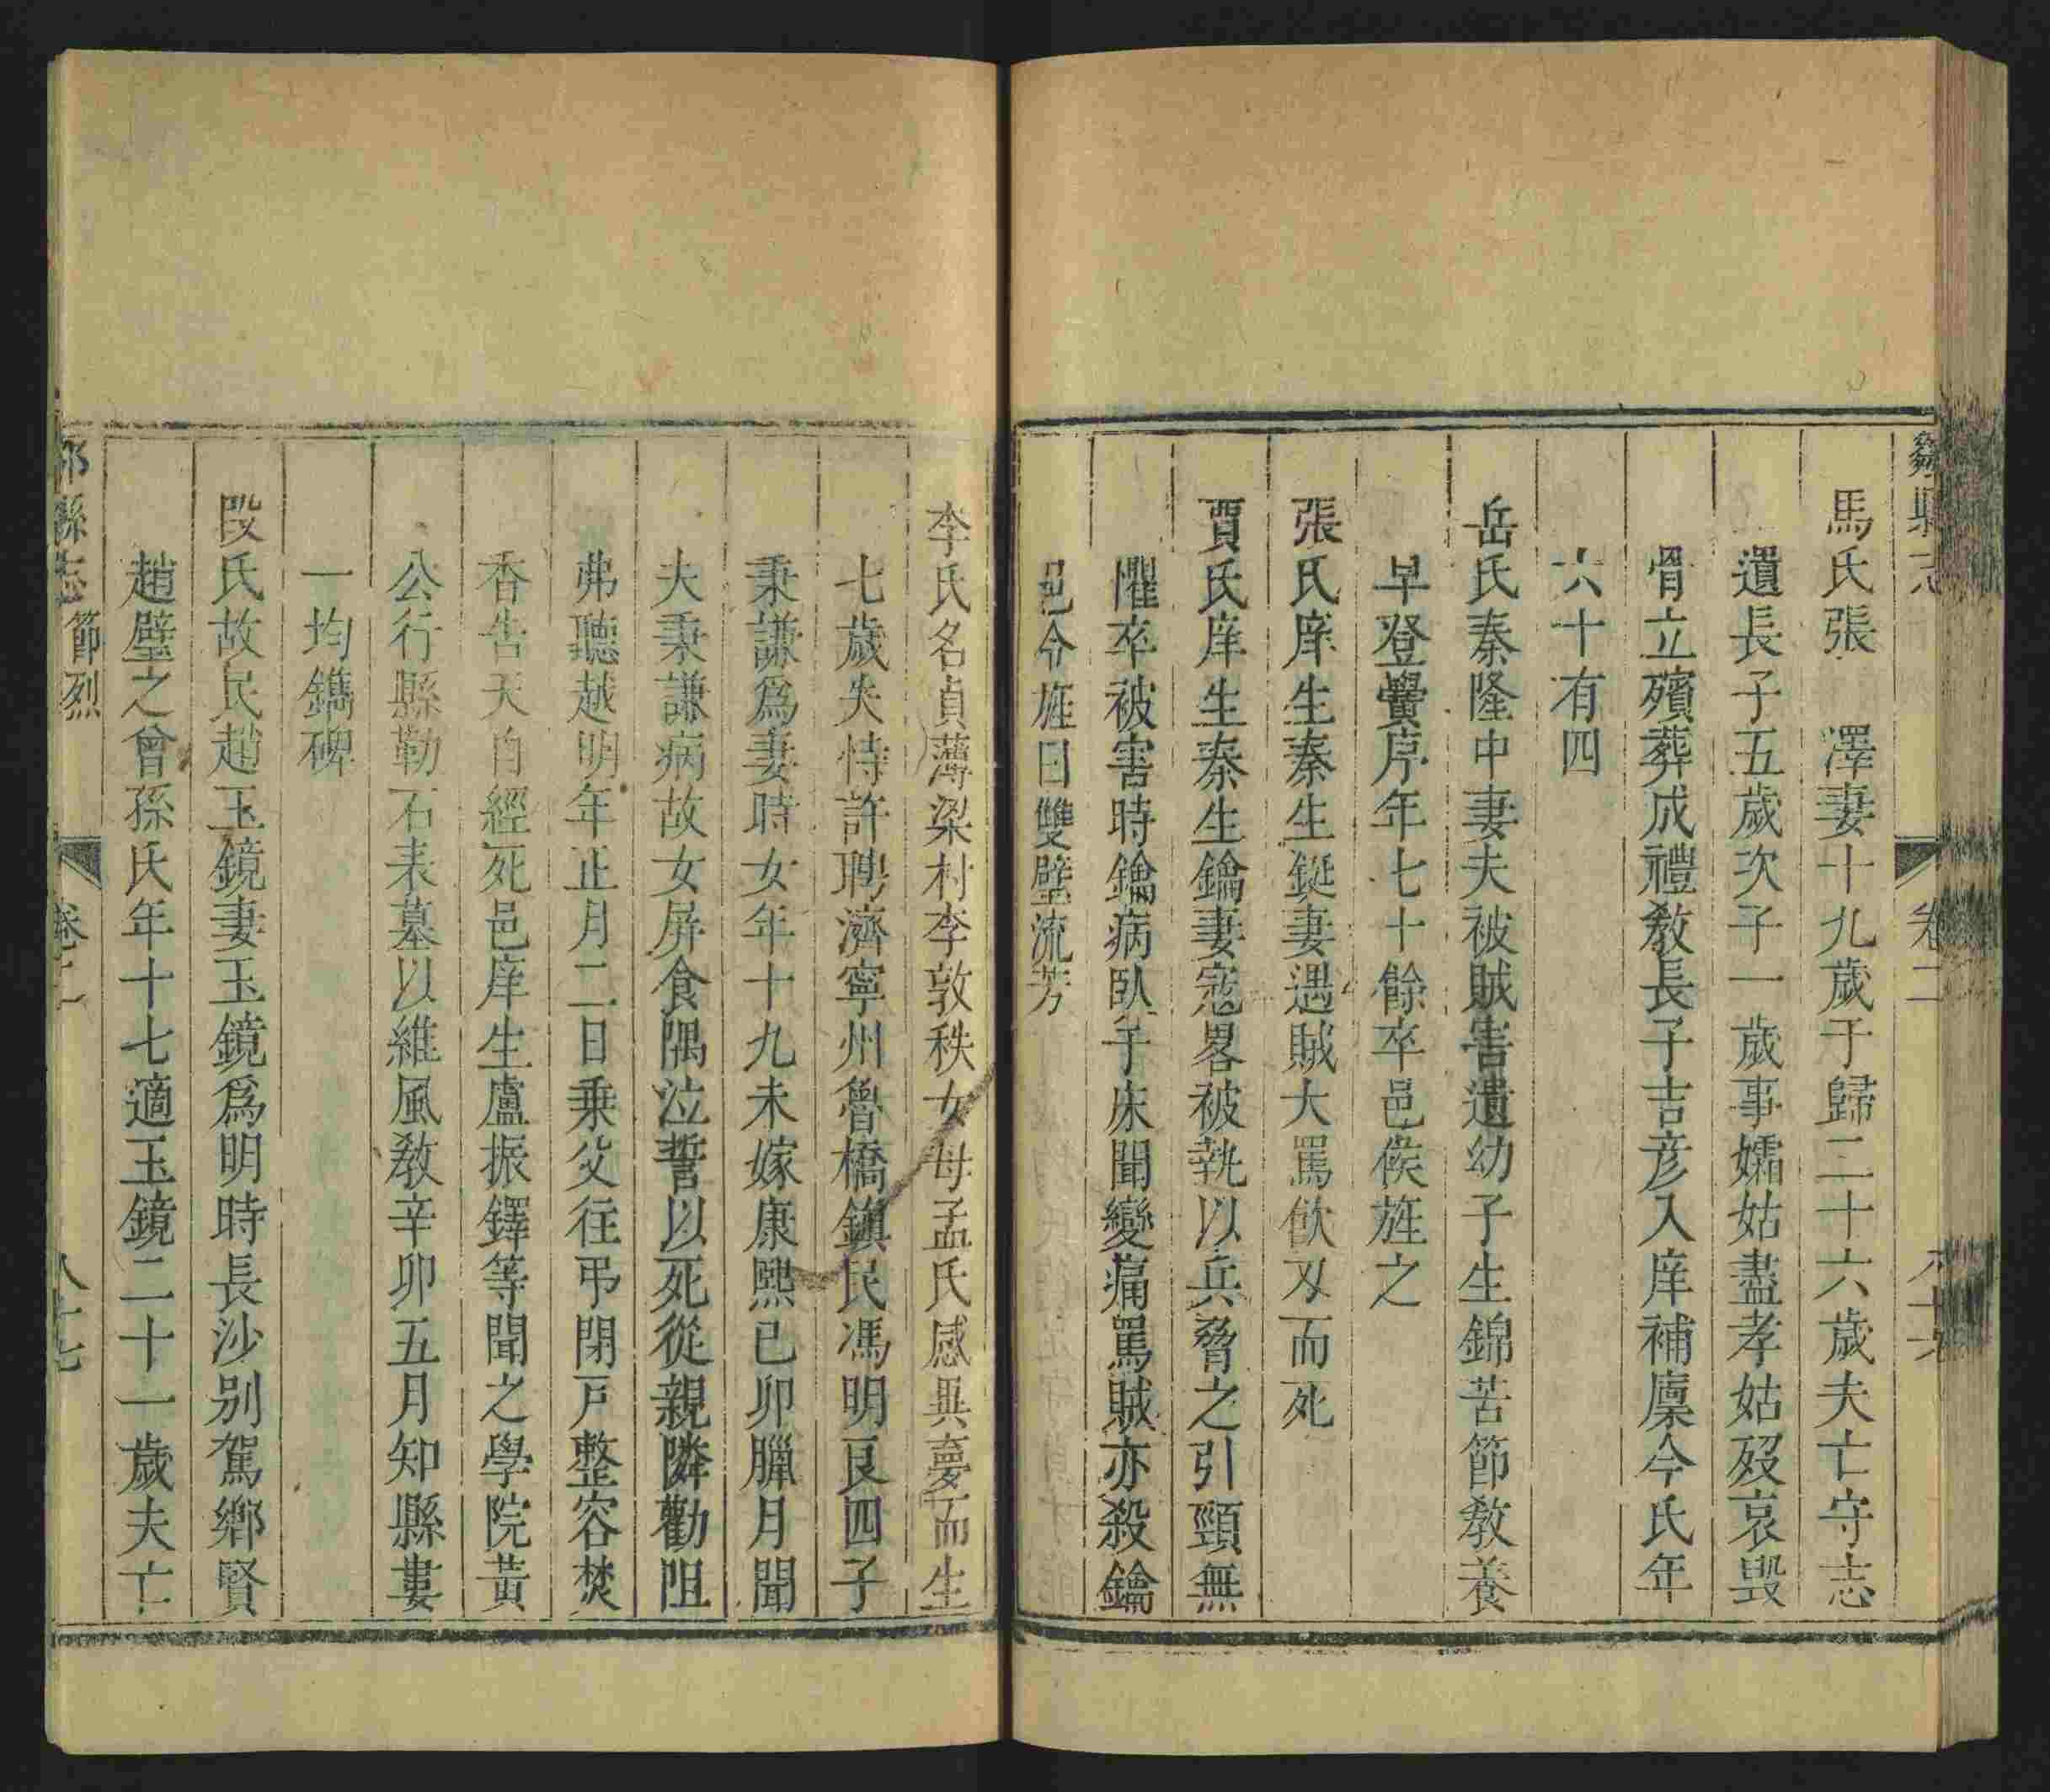 鄒縣志 卷二
馬氏張 澤妻十九歲于歸二十六歲夫亡守志
遺長子五歲次子一歲事孀姑盡孝姑歿哀毀
骨立殯葬成禮敎長子吉彦入庠補廩今氏年
六十有四
岳氏秦隆中妻夫被賊害遺幼子生錦苦節敎養
早登黌序年七十餘卒邑侯旌之
張氏庠生秦生鋋妻遇賊大罵飲刄而死
賈氏庠生秦生鑰妻寇畧被執以兵脅之引頸無
懼卒被害時鑰病臥于床聞變痛罵賊亦殺鑰
邑令旌曰雙璧流芳
李氏名貞薄梁村李敦秩女母孟氏感異夢而生
七歲失恃許聘濟寧州魯橋鎭民馮明良四子
秉謙爲妻時女年十九未嫁康熙已卯臘月聞
夫秉謙病故女屏食隅泣誓以死從親隣勸阻
弗聽越明年正月二日乗父往弔閉戸整容焚
香告天自經死邑庠生盧振鐸等聞之學院黃
公行縣勒石表墓以維風敎辛卯五月知縣婁
一均鐫碑
段氏故民趙玉鏡妻玉鏡爲明時長沙別駕鄉賢
趙璧之曾孫氏年十七適玉鏡二十一歲夫亡
鄒縣志 節烈 卷二 八十七